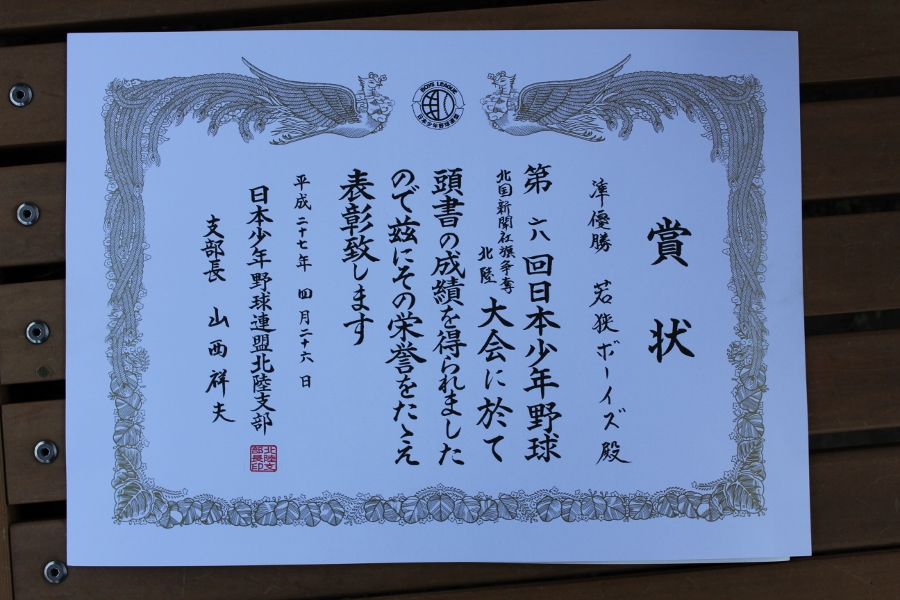 BOYS LEAGUE
日本少年野球連盟
賞状
準優勝 若狭ボーイズ殿
第六回日本少年野球
北国新聞社旗争奪
北陸
大会に於て
頭書の成績を得られました
ので茲にその栄誉をたゝえ
表彰致します
平成二十七年 四月二十六日
日本少年野球連盟北陸支部
支部長 山西祥夫
北陸支
部長印